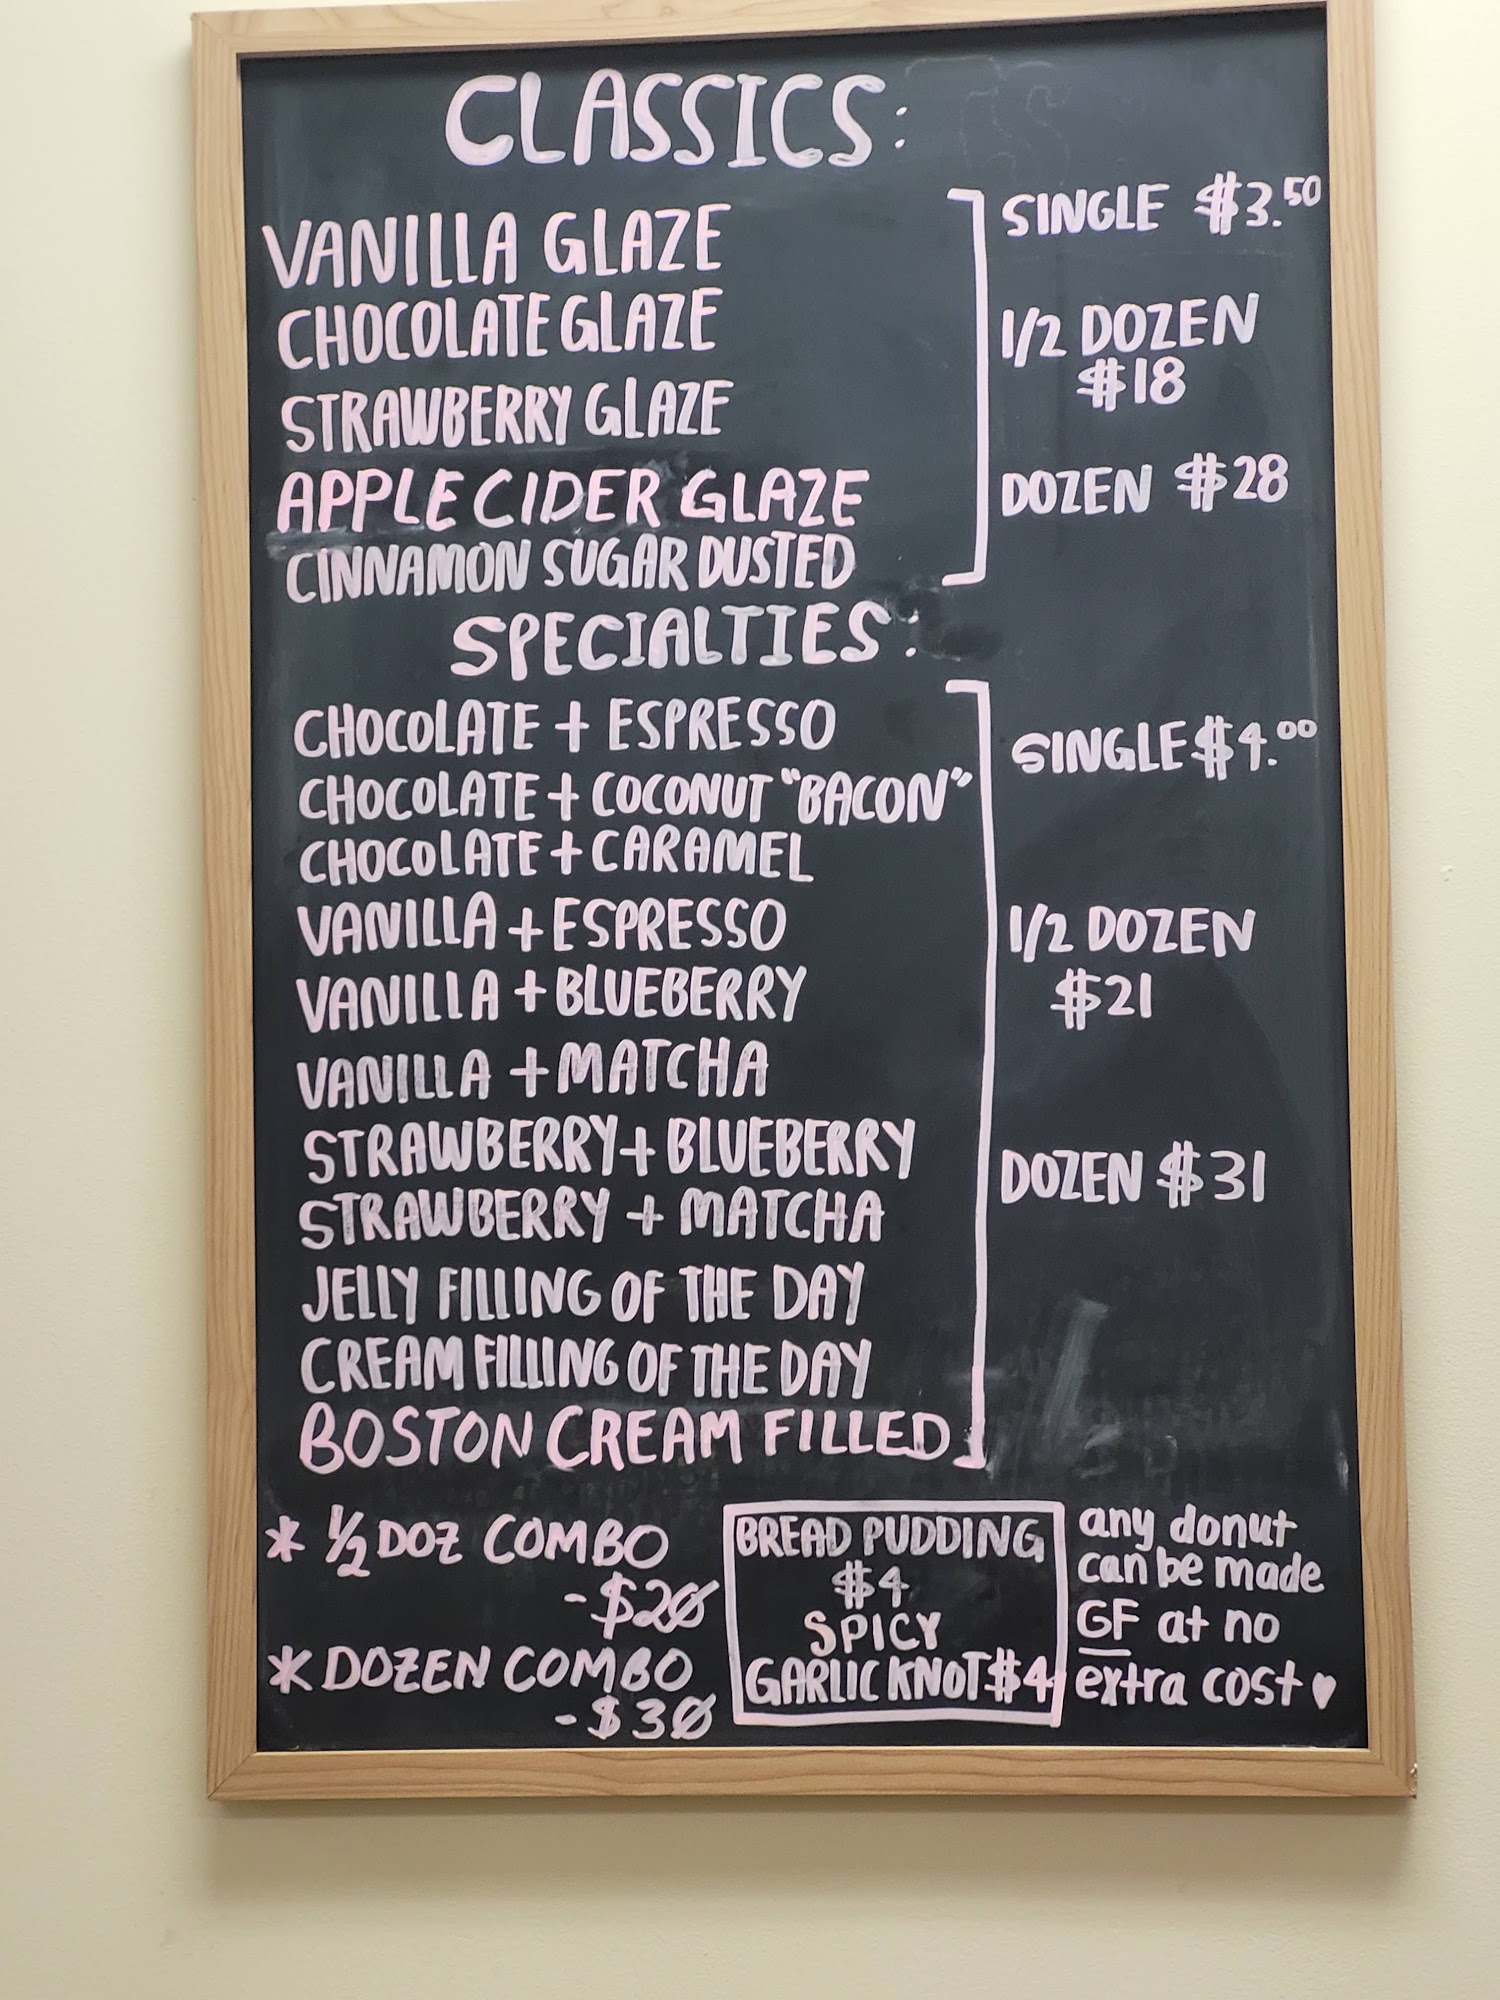 CLASSICS:
VANILLA GLAZE
CHOCOLATE GLAZE
STRAWBERRY GLAZE
APPLE CIDER GLAZE
CINNAMON SUGAR DUSTED
SINGLE $3.50
1/2 DOZEN
$18
DOZEN $28
SPECIALTIES:
CHOCOLATE + ESPRESSO
CHOCOLATE + COCONUT "BACON"
CHOCOLATE + CARAMEL
VANILLA + ESPRESSO
VANILLA + BLUEBERRY
VANILLA + MATCHA
STRAWBERRY + BLUEBERRY
STRAWBERRY + MATCHA
JELLY FILLING OF THE DAY
CREAM FILLING OF THE DAY
BOSTON CREAM FILLED
SINGLE $4.00
1/2 DOZEN
$21
DOZEN $31
* 1/2 DOZ COMBO
- $20
* DOZEN COMBO
- $30
BREAD PUDDING
$4
SPICY
GARLIC KNOT $4
any donut
can be made
GF at no
extra cost ♥